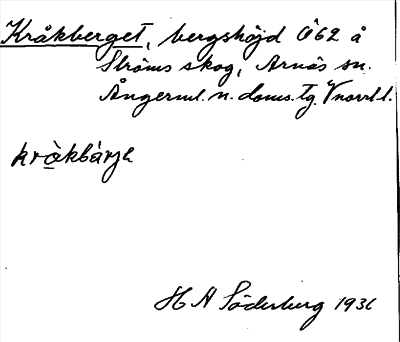 Kråkberget, bergshöjd Ö62 å
Ströms skog, Arnäs sn.
Ångerml. n. doms. tg. V norrl l.
kràkbàrjə
H A Söderberg 1931